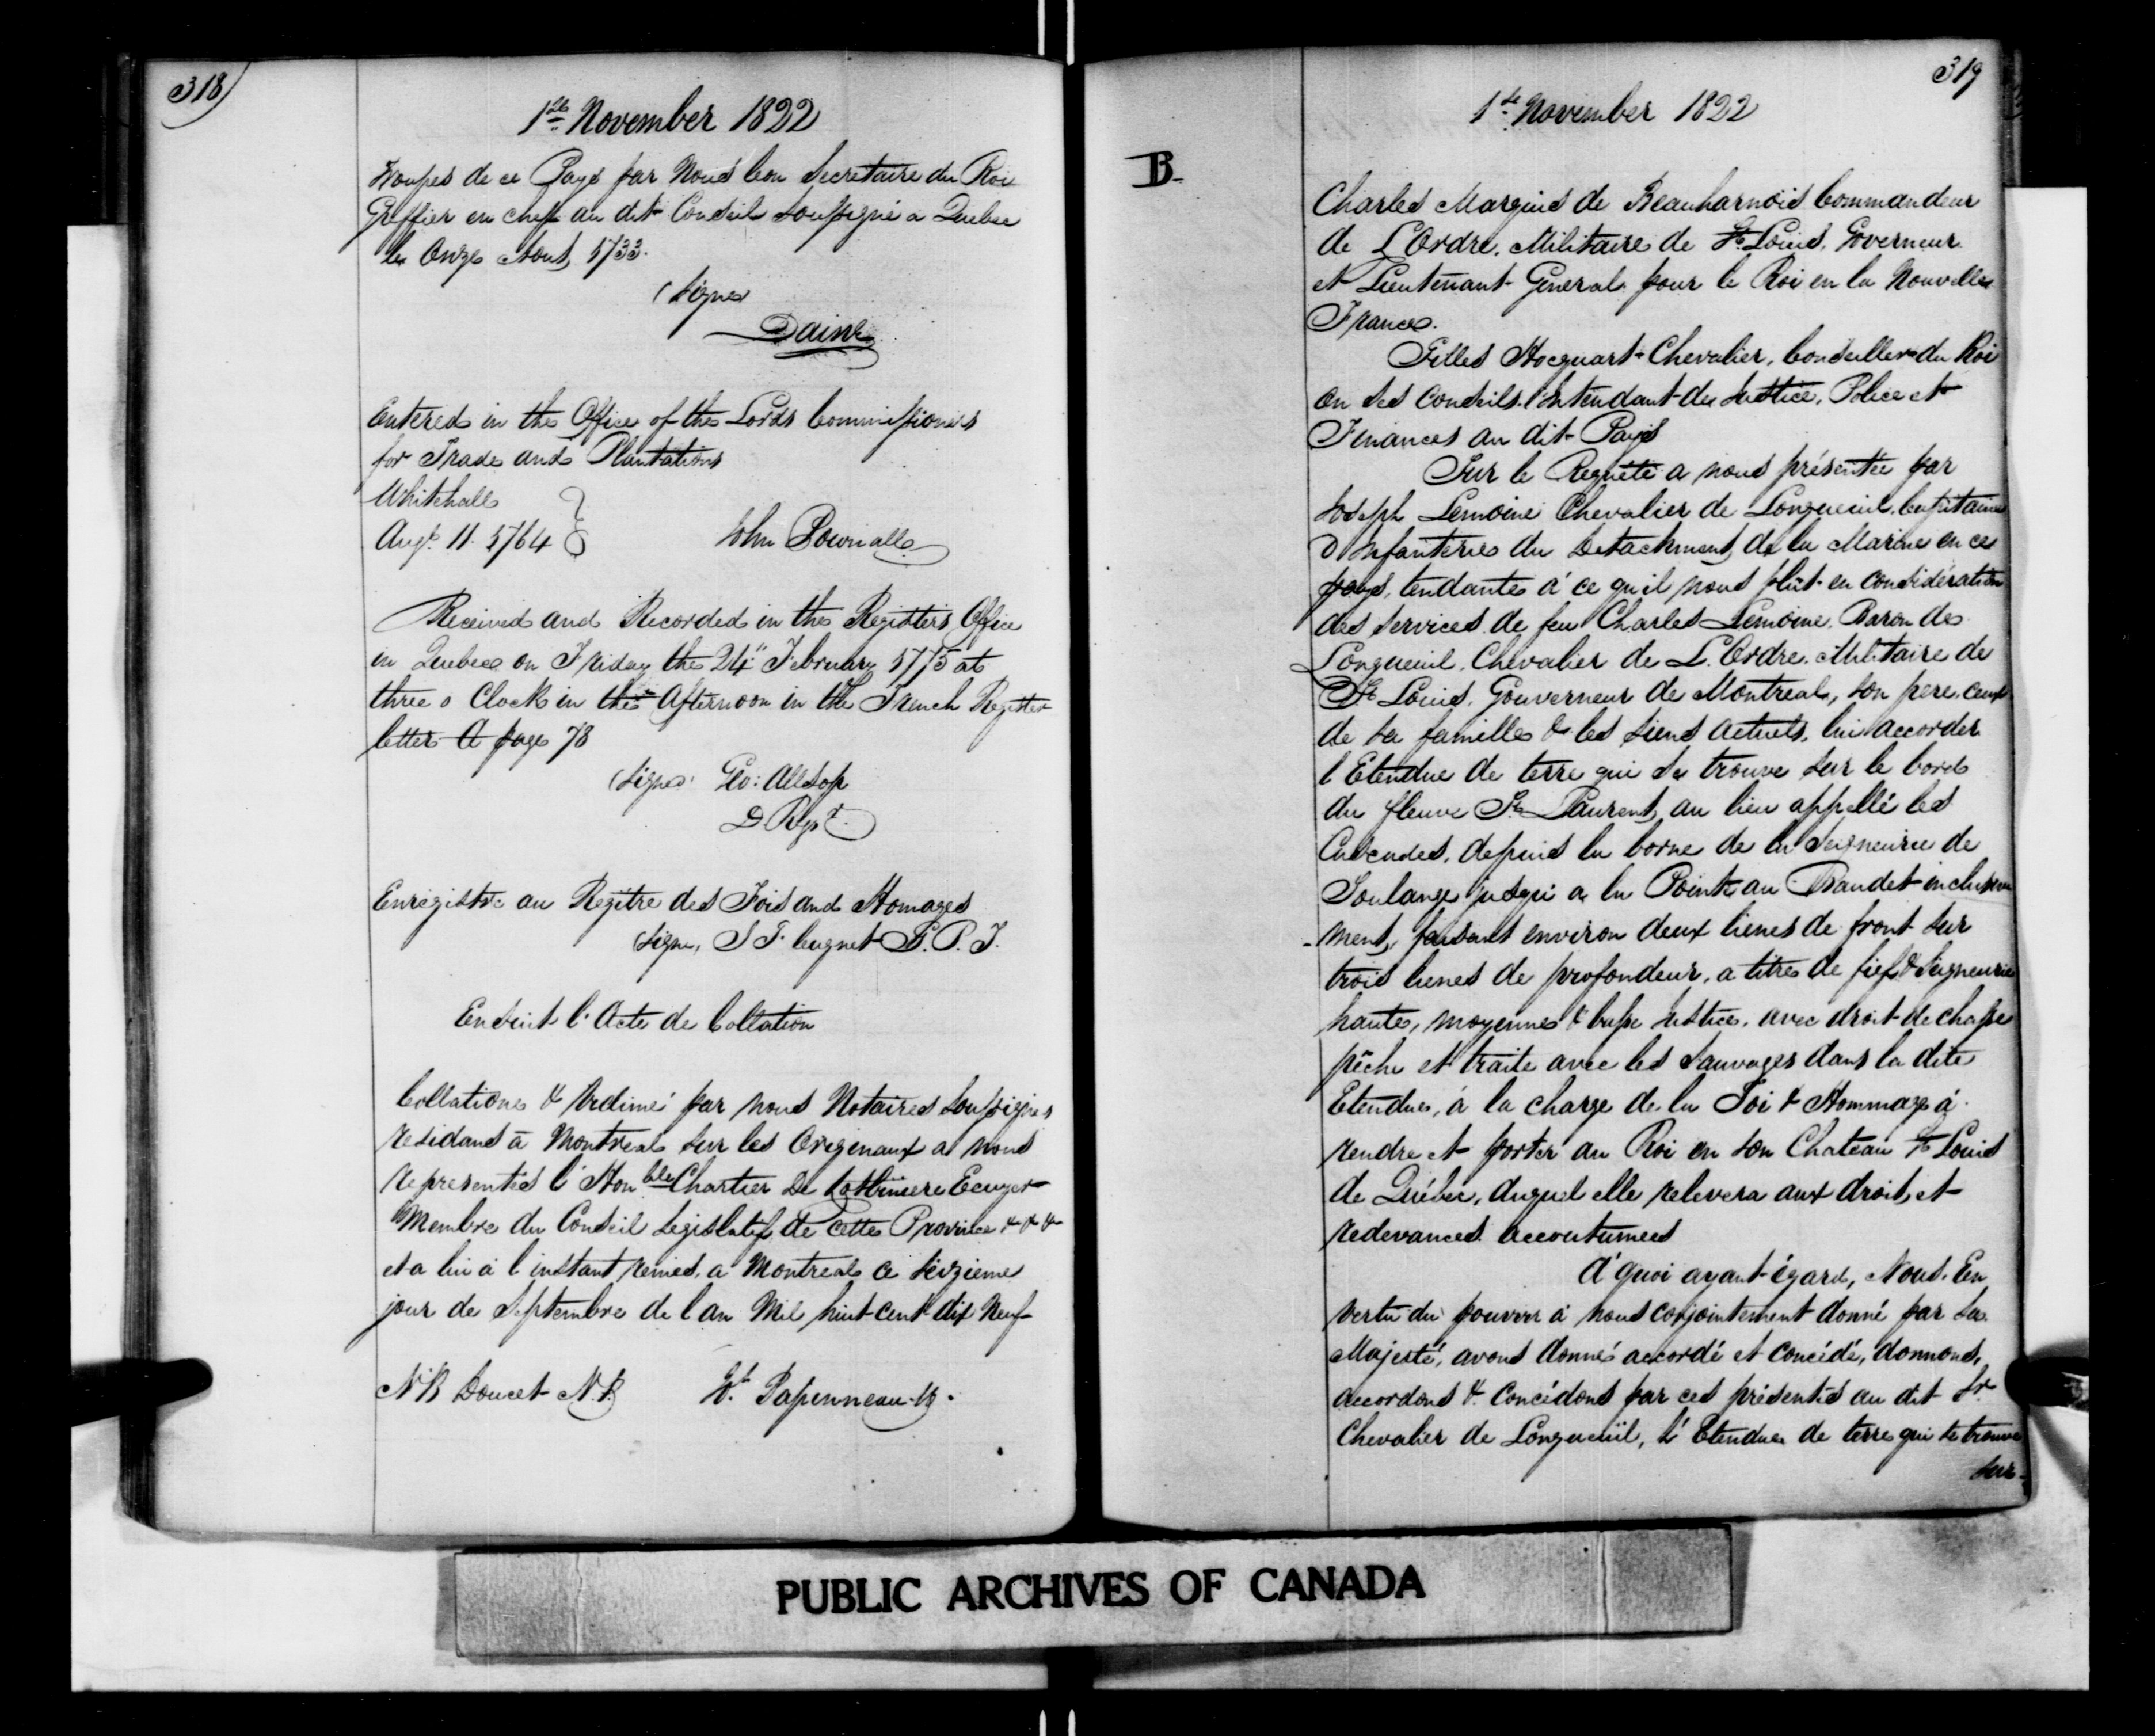 318
1st November 1822
troupes de ce Pays par Nous Con Secretaire du Roi
Greffier en chef au dit Conseil soussigné a Quebec
le Onze Aout 1733.
(Signe
Daine
Entered in the Office of the Lords Commissioners
for Trade and Plantations
Whitehall
Augt. 11. 1764
John Pownall
Received and Recorded in the Registers Office
in Quebec on Friday the 24" February 1775 at
three o Clock in the Afternoon in the French Register
letter A page 78
(Signe Geo: Allsop
D. Regr.
Enregistre au Regitre des Fois and Homages
(Signe, J F. Cugnet G. P. T.
Ensuit l'Acte de Collation
Collatione & Vidimé par nous Notaires Soussignes
residans à Montreal sur les Originaux a nous
representés l'Honble Chartier De Lotbiniere Ecuyer
Membre du Conseil Legislatif de cette Province & & &
et a lui à l instant remis, a Montreal ce seizieme
jour de Septembre de l an Mil huit cent dix Neuf
N B Doucet N. P.
Papinneau N
319
1st November 1822
B
Charles Marquis de Beauharnois Commandeur
de L'Ordre Militaire de St. Louis, Governeur
et Lieutenant General pour le Roi en la Nouvelle
France.
Gilles Hocquart Chevalier, Conseiller du Roi
en ses conseils, intendant de Justice, Police et
Finances au dit Pays
Sur le Requête a nous présentée par
Joseph Lemoine Chevalier de Longueuil, Capitaine
d Infanterie du Detachment de la Marine en ce
pays, tendante à ce qu'il nous plût en considération
des services de feu Charles Lemoine, Baron de
Longueuil, Chevalier de L. Ordre Militaire de
St. Louis, Gouverneur de Montreal, son pere, ceux
de sa famille & les siens actuels, lui accorder
l'Etendue de terre qui se trouve sur le bord
du fleuve St. Laurent, au lieu appellé les
Cascades, depuis la borne de la Seigneurie de
Soulange jusqu'a la Pointe au Baudet inclusive
-ment, faisant environ deux lieues de front sur
trois lieues de profondeur, a titre de fief & Seigneurie
haute, moyenne & basse Justice, avec droit de chasse
pêche et traite avec les Sauvages dans la dite
Etendue, à la charge de la Foi & Hommage à
rendre et porter au Roi en son Chateau St. Louis
de Québec, duquel elle relevera aux droits et
redevances accoutumees
A' quoi ayant égard, Nous, En
vertu du pouvoir à nous conjointement donné par Sa
Majesté, avons donné accordé et concédé, donnons,
accordons & concédons par ces présentes au dit Sr.
Chevalier de Longueuil, L' Etendue de terre qui se trouve
sur
PUBLIC ARCHIVES OF CANADA